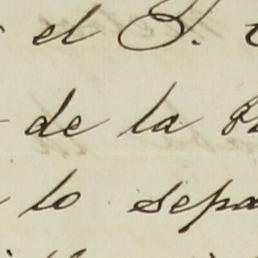 el S.
de la
lo sepa